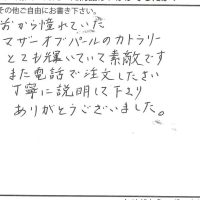 その他ご自由にお書き下さい。
前から憧れていた
マザーオブパールのカトラリー
とても輝いていて素敵です
また電話で注文したさい
丁寧に説明して下さり
ありがとうございました。